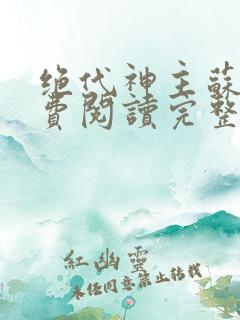 绝代神主蘇
費閱讀完整
紅幽靈
未经同意禁止转载